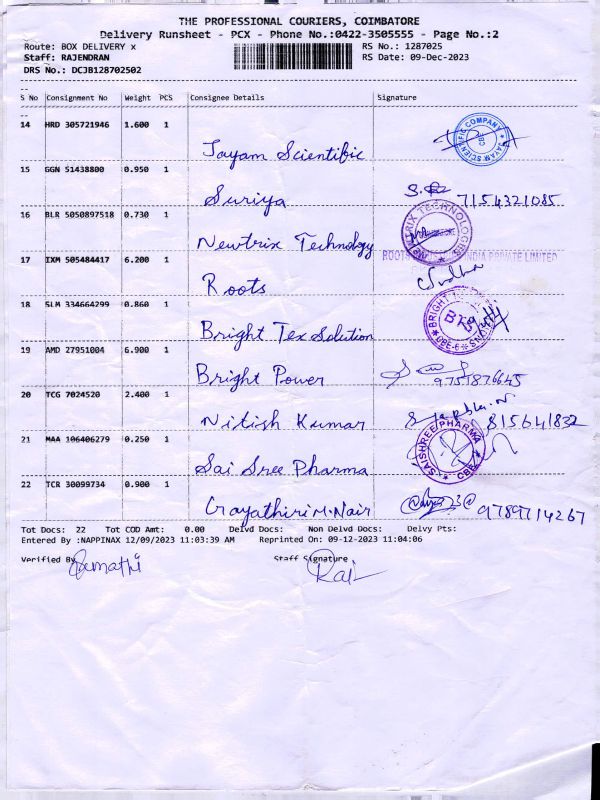 THE PROFESSIONAL COURIERS, COIMBATORE
Delivery Runsheet - PCX - Phone No.:0422-3505555 - Page No.:2
Route: BOX DELIVERY x RS No.: 1287025
Staff: RAJENDRAN RS Date: 09-Dec-2023
DRS No.: DCJB128702502
S No Consignment No Weight PCS Consignee Details Signature
14 HRD 305721946 1.600 1
Jayam Scientific
JAYAM SCIENTIFIC COMPANY
15 GGN 51438800 0.950 1
Suriya 7154321085
16 BLR 5050897518 0.730 1
Newtrix Technology NEWTRIX TECHNOLOGIES
17 IXM 505484417 6.200 1 ROOTS INDIA PRIVATE LIMITED
Roots Sudha
18 SLM 334664299 0.860 1
Bright Tex Solution BRIGHT BTS CBE-6
19 AMD 27951004 6.900 1
Bright Power 9751876645
20 TCG 7024520 2.400 1
Nitish Kumar 815641832
21 MAA 106406279 0.250 1
Sai Sree Pharma SAISHREE PHARMA CBE
22 TCR 30099734 0.900 1
Gayathiri M. Nair 9789714267
Tot Docs: 22 Tot COD Amt: 0.00 Delvd Docs: Non Delvd Docs: Delvy Pts:
Entered By :NAPPINAX 12/09/2023 11:03:39 AM Reprinted On: 09-12-2023 11:04:06
Verified By Staff Signature
Sumathi Raj